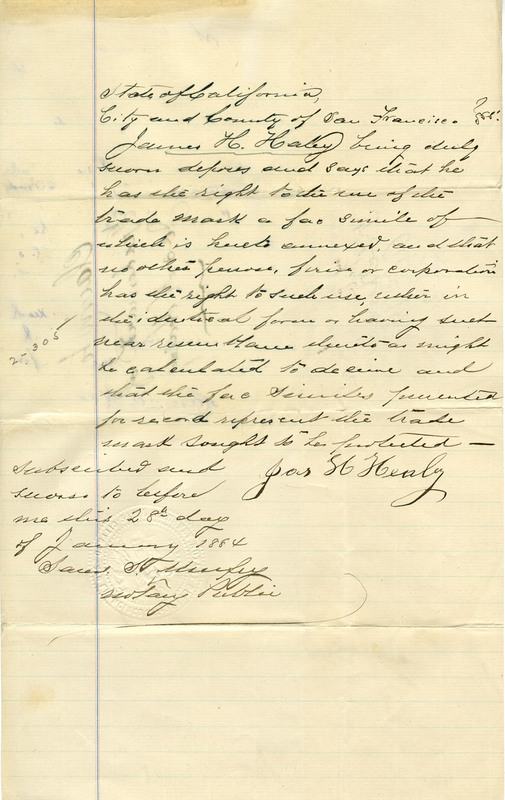 State of California,
City and County of San Francisco } ss.
James H. Healy being duly
sworn deposes and says that he
has the right to the use of the
trade mark a fac simile of
which is hereto annexed, and that
no other person, firm or corporation
has the right to such use, either in
the identical form or having such
near resemblance thereto as might
be calculated to deceive and
that the fac similes presented
for record represent the trade
mark sought to be protected —
Jas H Healy
Subscribed and
sworn to before
me this 28th day
of January 1884
Saml. S. Murfey
Notary Public
2305